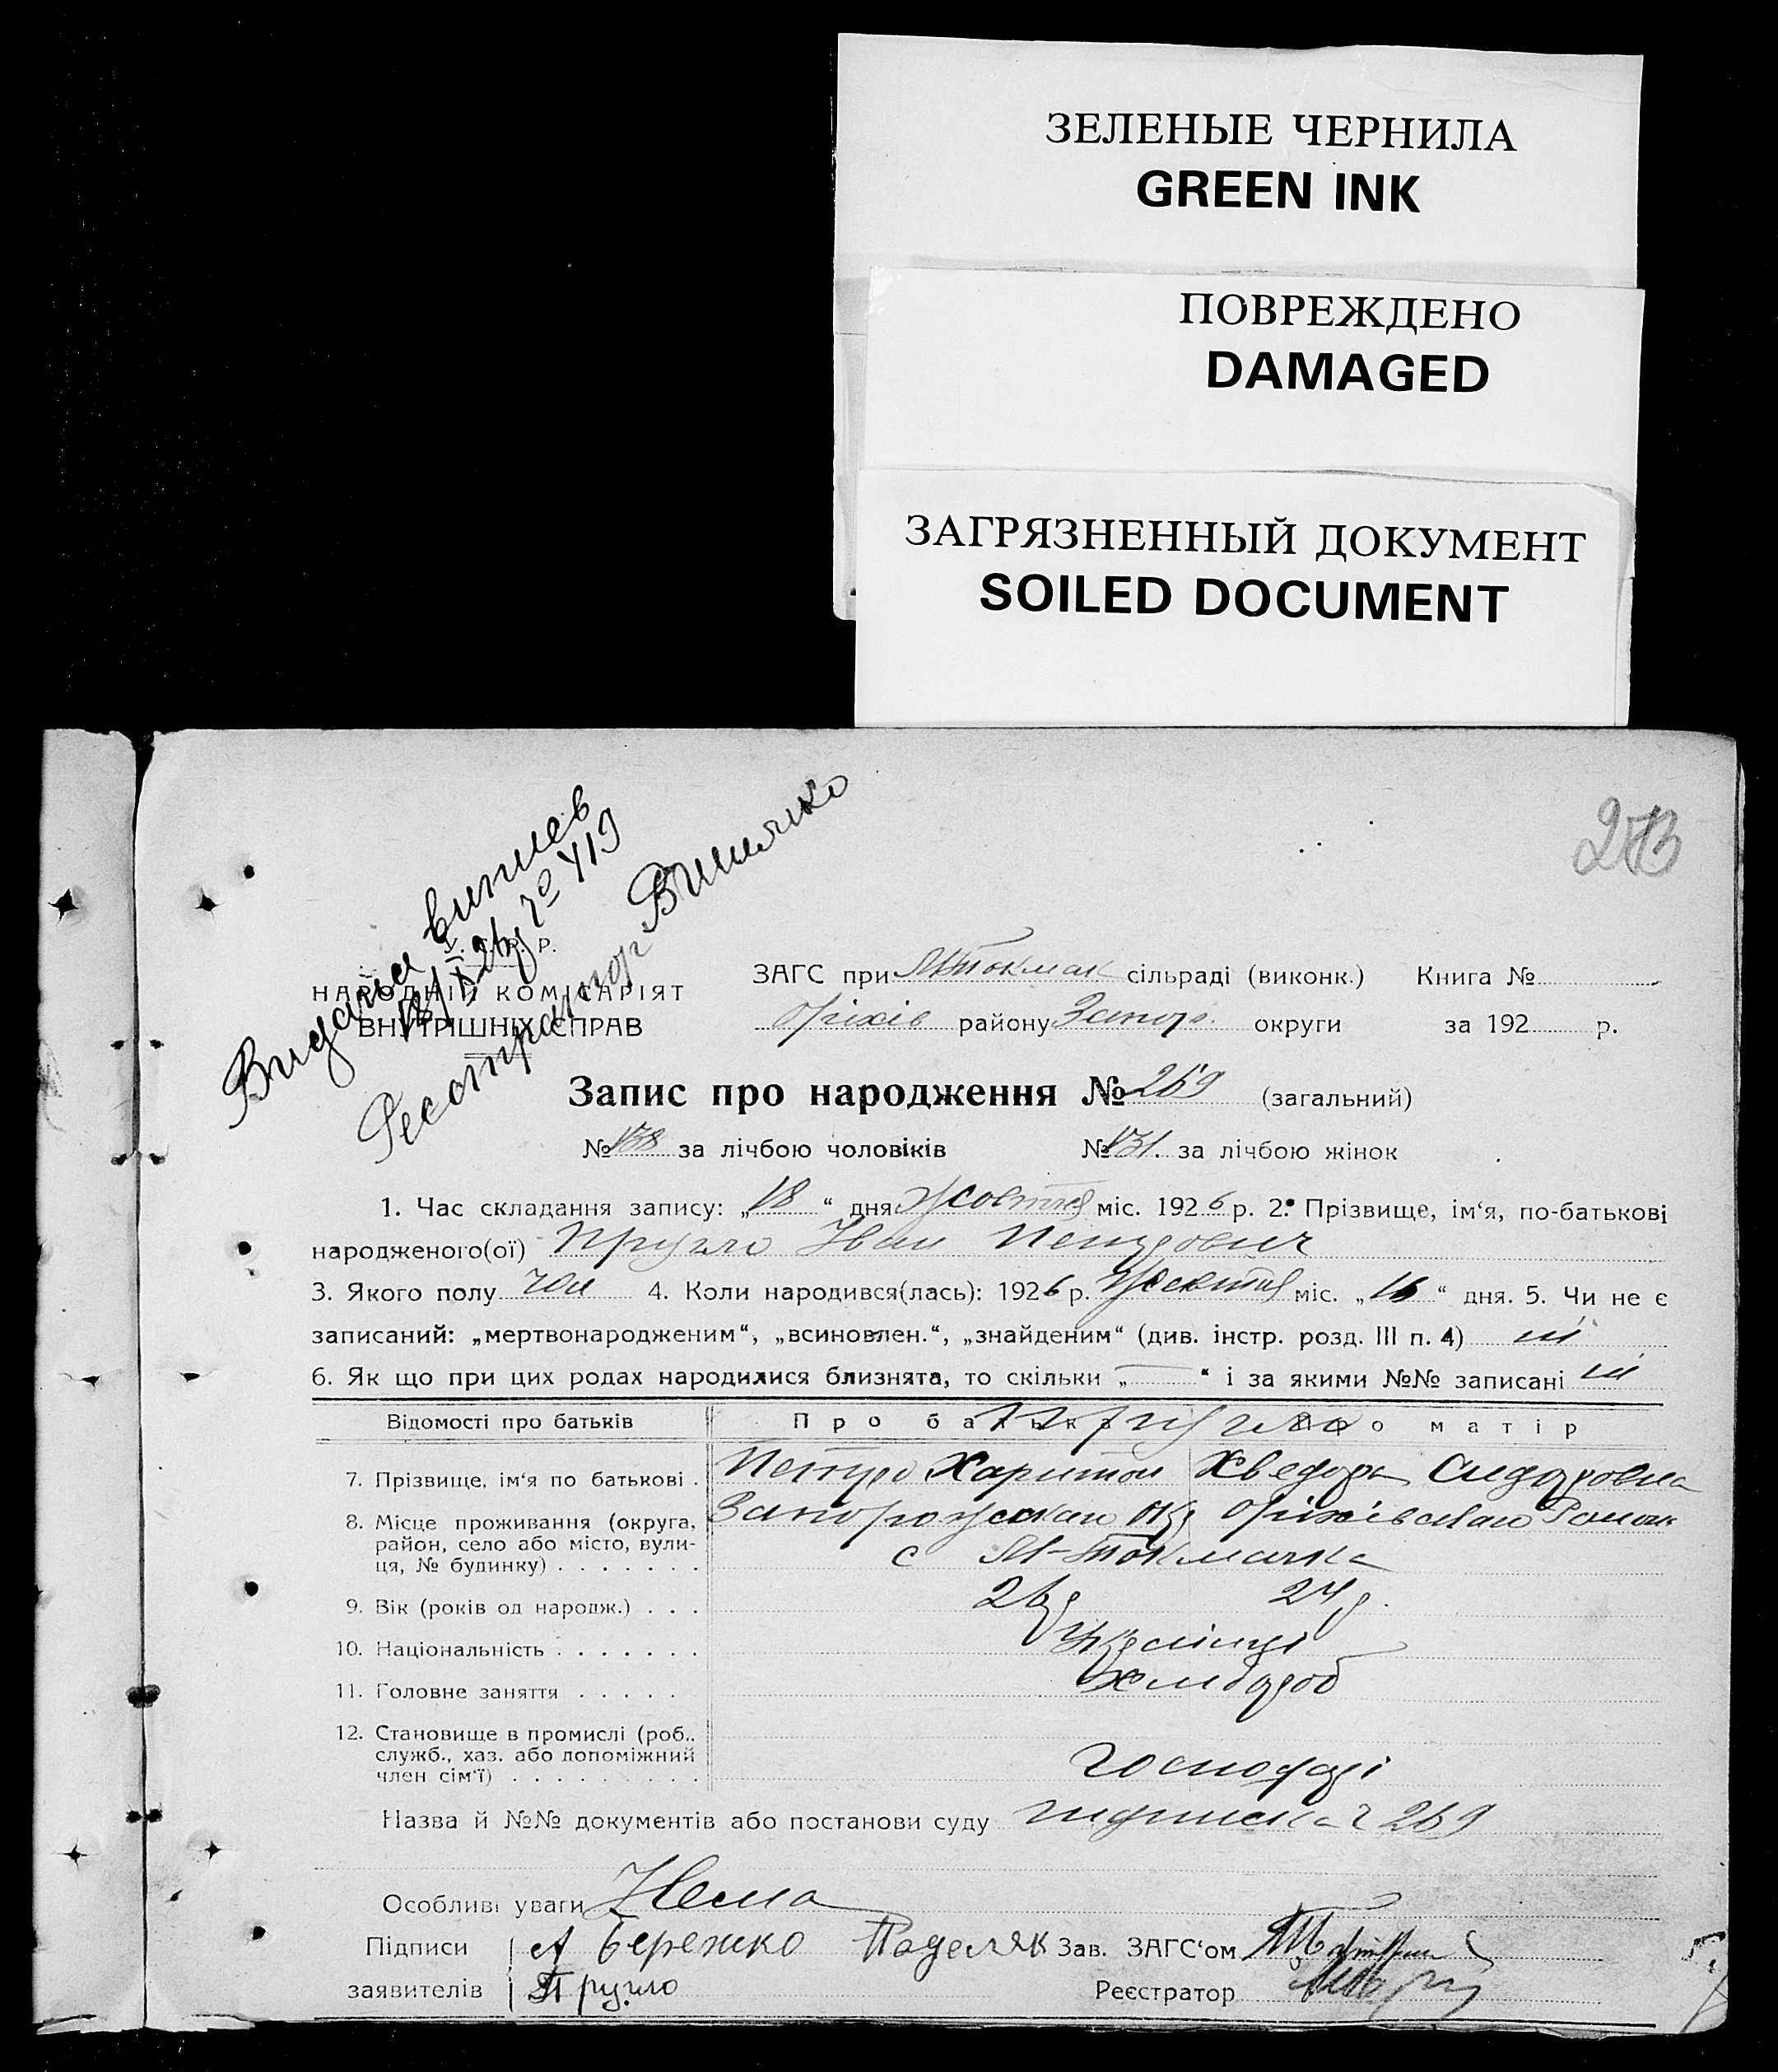 ЗЕЛЕНЫЕ ЧЕРНИЛА
GREEN INK
ПОВРЕЖДЕНО
DAMAGED
ЗАГРЯЗНЕННЫЙ ДОКУМЕНТ
SOILED DOCUMENT
Видана випись
№ 419
Реєстратор
У. С. Р. Р.
НАРОДНІЙ КОМІСАРІЯТ
ВНУТРІШНІХ СПРАВ
ЗАГС при М-Токмак сільраді (виконк.) Книга №
Оріхів району Запор. округи за 192 р.
Запис про народження № 269 (загальний)
№ 138 за лічбою чоловіків № 131. за лічбою жінок
1. Час складання запису: „18“ дня Жовтня міс. 1926 р. 2. Прізвище, ім‘я, по-батькові
народженого(ої) Пругло Іван Петрович
3. Якого полу чол 4. Коли народився(лась): 1926 р. Жовтня міс. „16“ дня. 5. Чи не є
записаний: „мертвонародженим“, „всиновлен.“, „знайденим“ (див. інстр. розд. III п. 4) ні
6. Як що при цих родах народилися близнята, то скільки „—“ і за якими №№ записані ні
Відомості про батьків Про батька Про матір
Пругло
7. Прізвище, ім‘я по батькові . Петро Харитон Хведора Сидоровна
8. Місце проживання (округа, Запорожская Окр Оріхівська Район
район, село або місто, вули-
ця, № будинку) . . . . . . . с М-Токмачка
9. Вік (років од народж.) . . . 26 р 24 р.
10. Національність . . . . . . . Україінці
11. Головне заняття . . . . . Хлібороб
12. Становище в промислі (роб.,
служб., хаз. або допоміжний
член сім‘ї) . . . . . . . . . Господарі
Назва й №№ документів або постанови суду підписка 269
Особливі уваги Нема
Підписи А Бережко Поделяк Зав. ЗАГС‘ом
заявителів П Пругло Реєстратор